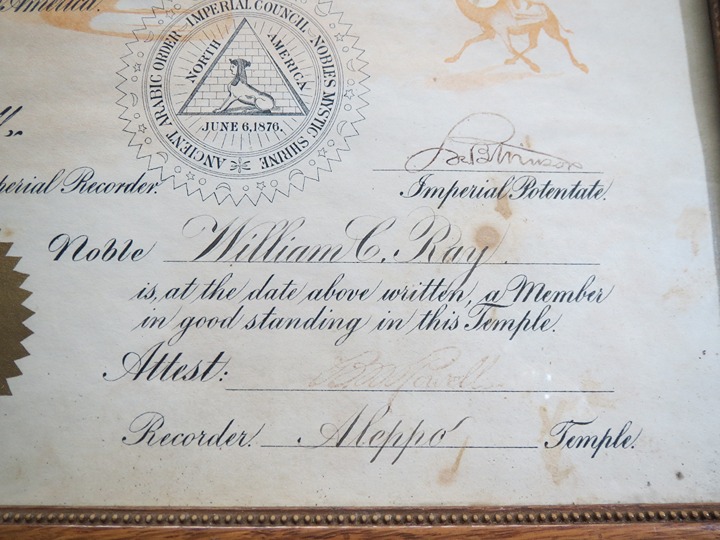 America.
ANCIENT ARABIC ORDER IMPERIAL COUNCIL NOBLES MYSTIC SHRINE
NORTH AMERICA
JUNE 6, 1876.
perial Recorder.
Imperial Potentate.
Noble William C. Ray
is, at the date above written, a Member
in good standing in this Temple.
Attest:
Recorder. Aleppo Temple.